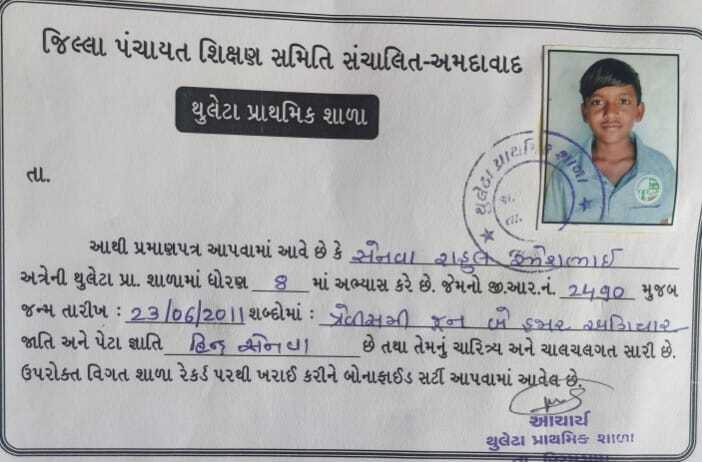 જિલ્લા પંચાયત શિક્ષણ સમિતિ સંચાલિત-અમદાવાદ
થુલેટા પ્રાથમિક શાળા
થુલેટા પ્રાથમિક શાળા
તા.
આથી પ્રમાણપત્ર આપવામાં આવે છે કે સેનવા રાહુલ રમેશભાઈ
અત્રેની થુલેટા પ્રા. શાળામાં ધોરણ 8 માં અભ્યાસ કરે છે. જેમનો જી.આર.નં. 2490 મુજબ
જન્મ તારીખ : 23/06/2011 શબ્દોમાં : ત્રેવીસમી જૂન બે હજાર અગિયાર
જાતિ અને પેટા જ્ઞાતિ હિન્દુ સેનવા છે તથા તેમનું ચારિત્ર્ય અને ચાલચલગત સારી છે.
ઉપરોક્ત વિગત શાળા રેકર્ડ પરથી ખરાઈ કરીને બોનાફાઈડ સર્ટી આપવામાં આવેલ છે.
આચાર્ય
થુલેટા પ્રાથમિક શાળા